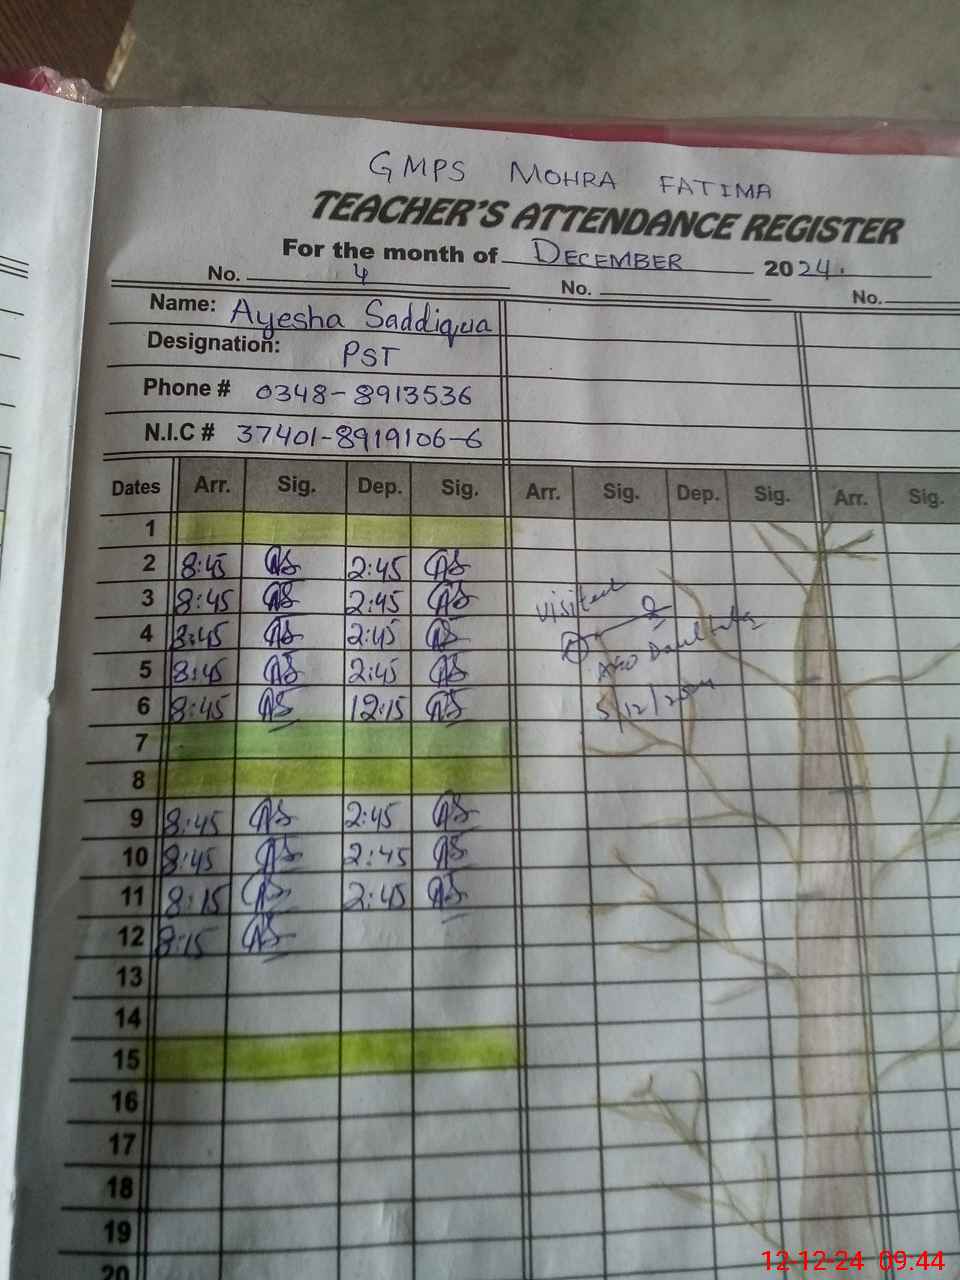 GMPS MOHRA FATIMA
TEACHER'S ATTENDANCE REGISTER
For the month of DECEMBER 2024.
No. 4 No. No.
Name: Ayesha Saddiqua
Designation: PST
Phone # 0348-8913536
N.I.C # 37401-8919106-6
Dates Arr. Sig. Dep. Sig. Arr. Sig. Dep. Sig. Arr. Sig.
1
2 8:45 AS 2:45 AS
3 8:45 AS 2:45 AS
visited
4 8:45 AS 2:45 AS
5 8:45 AS 2:45 AS
6 8:45 AS 12:15 AS
5/12/2024
7
8
9 8:45 AS 2:45 AS
10 8:45 AS 2:45 AS
11 8:15 AS 2:45 AS
12 8:15 AS
13
14
15
16
17
18
19
20
12-12-24 09.44